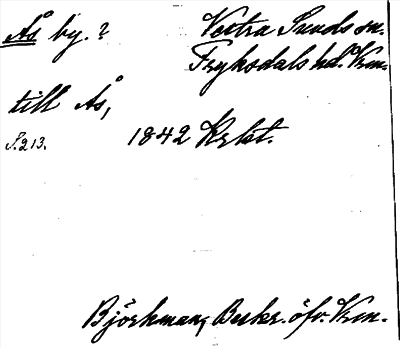 Ås by.?
Vestra Sunds sn.
Fryksdals hd. Vrm.
till Ås,
S. 213.
1842 Krkt.
Björkman, Beskr. öfv. Vrm.